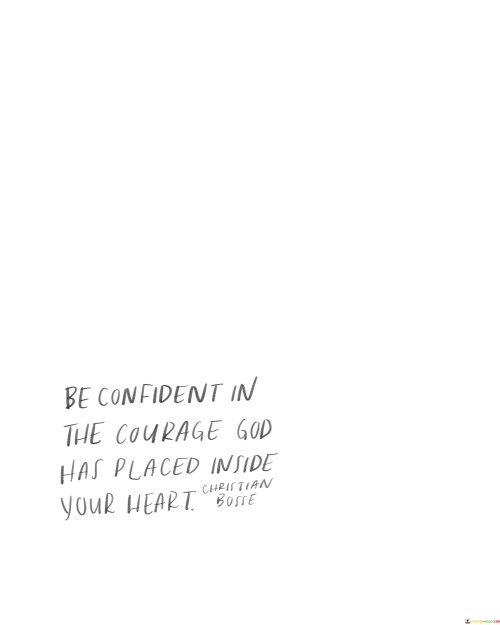 BE CONFIDENT IN
THE COURAGE GOD
HAS PLACED INSIDE
YOUR HEART.
CHRISTIAN
BOSSE